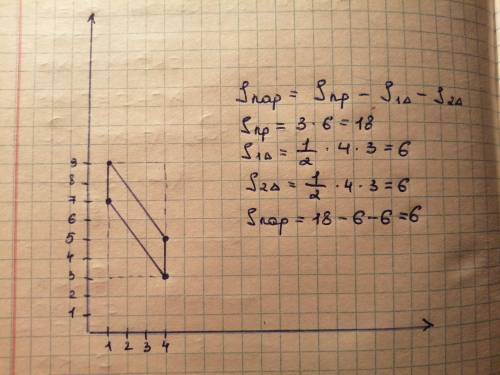 Sпар = Sпр - S1Δ - S2Δ
Sпр = 3 · 6 = 18
S1Δ = 1/2 · 4 · 3 = 6
S2Δ = 1/2 · 4 · 3 = 6
Sпар = 18 - 6 - 6 = 6
9
8
7
6
5
4
3
2
1
1 2 3 4